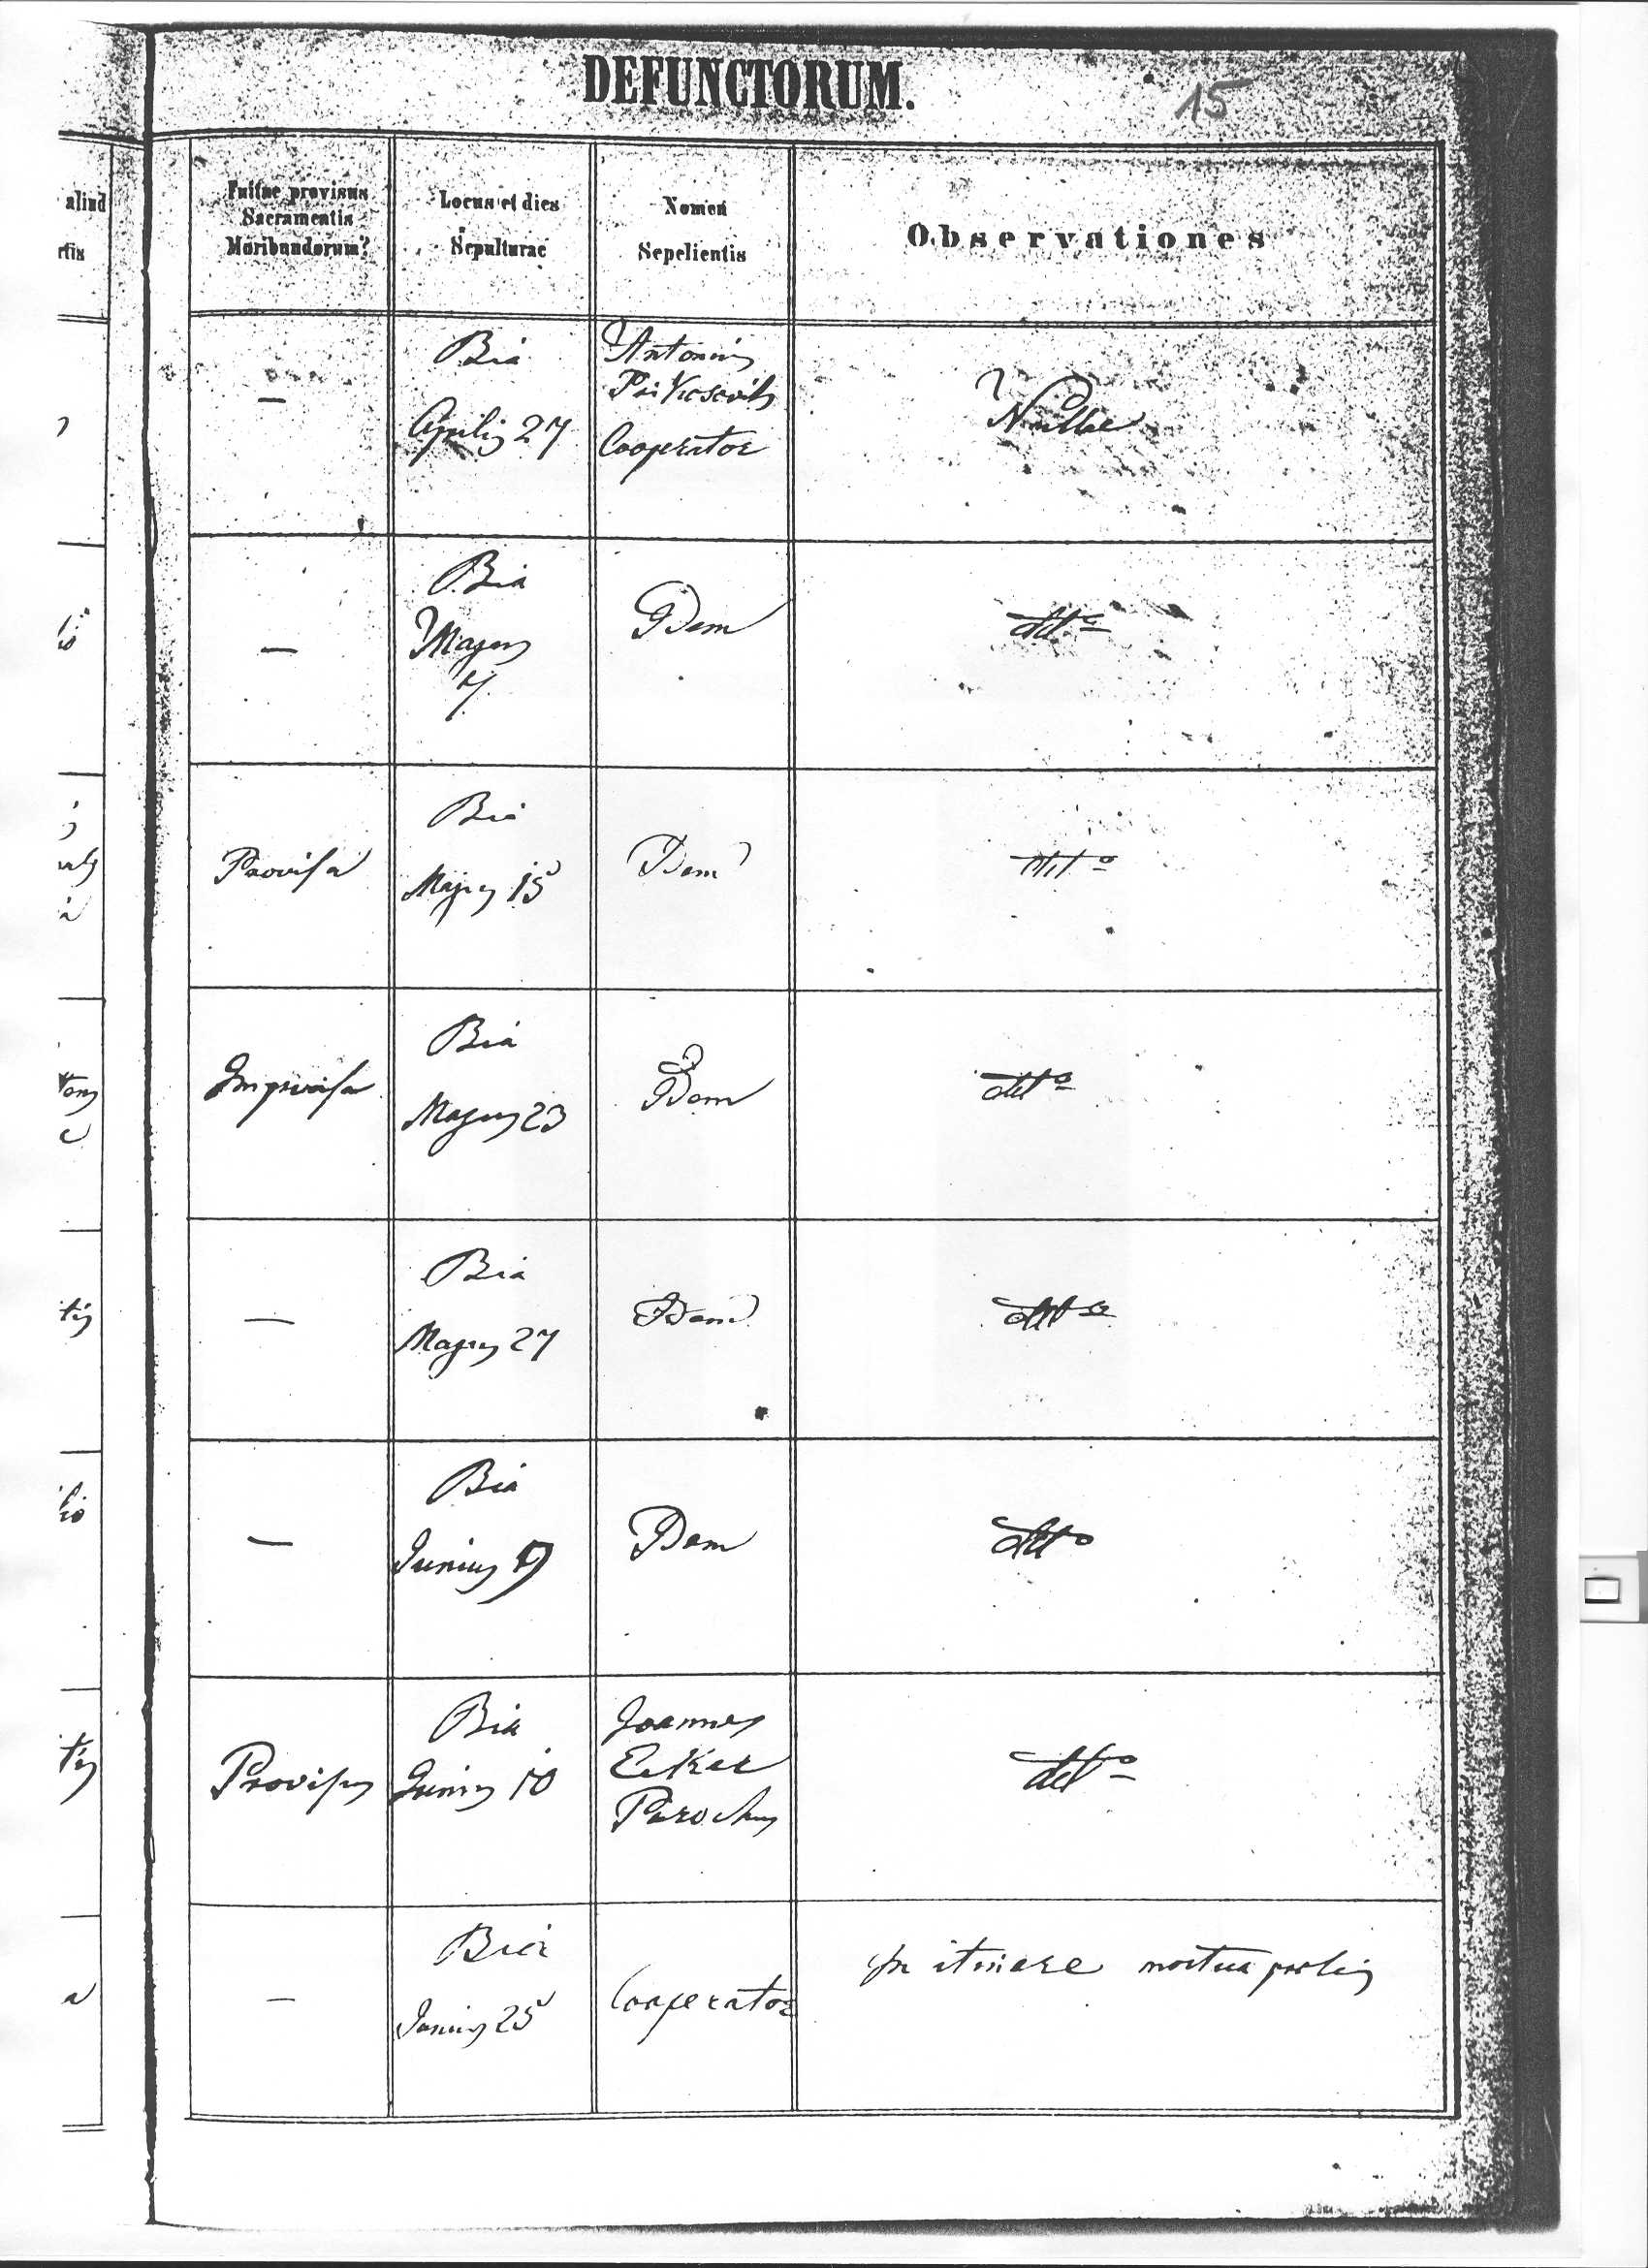 DEFUNCTORUM.
15
aliud
rtis
Fuitne provisus
Sacramentis
Moribundorum?
Locus et dies
Sepulturae
Nomen
Sepelientis
Observationes
—
Bia
Aprilis 27
Antonius
Cooperator
Nullae
—
Bia
Majus
7
Idem
detto
Provisa
Bia
Majus 15
Idem
detto
Improvisa
Bia
Majus 23
Idem
detto
—
Bia
Majus 27
Idem
detto
—
Bia
Junius
Idem
detto
Provisus
Bia
Junius 10
Joannes
Ecker
Parochus
detto
—
Bia
Junius 25
Cooperator
In itinere mortua prolis